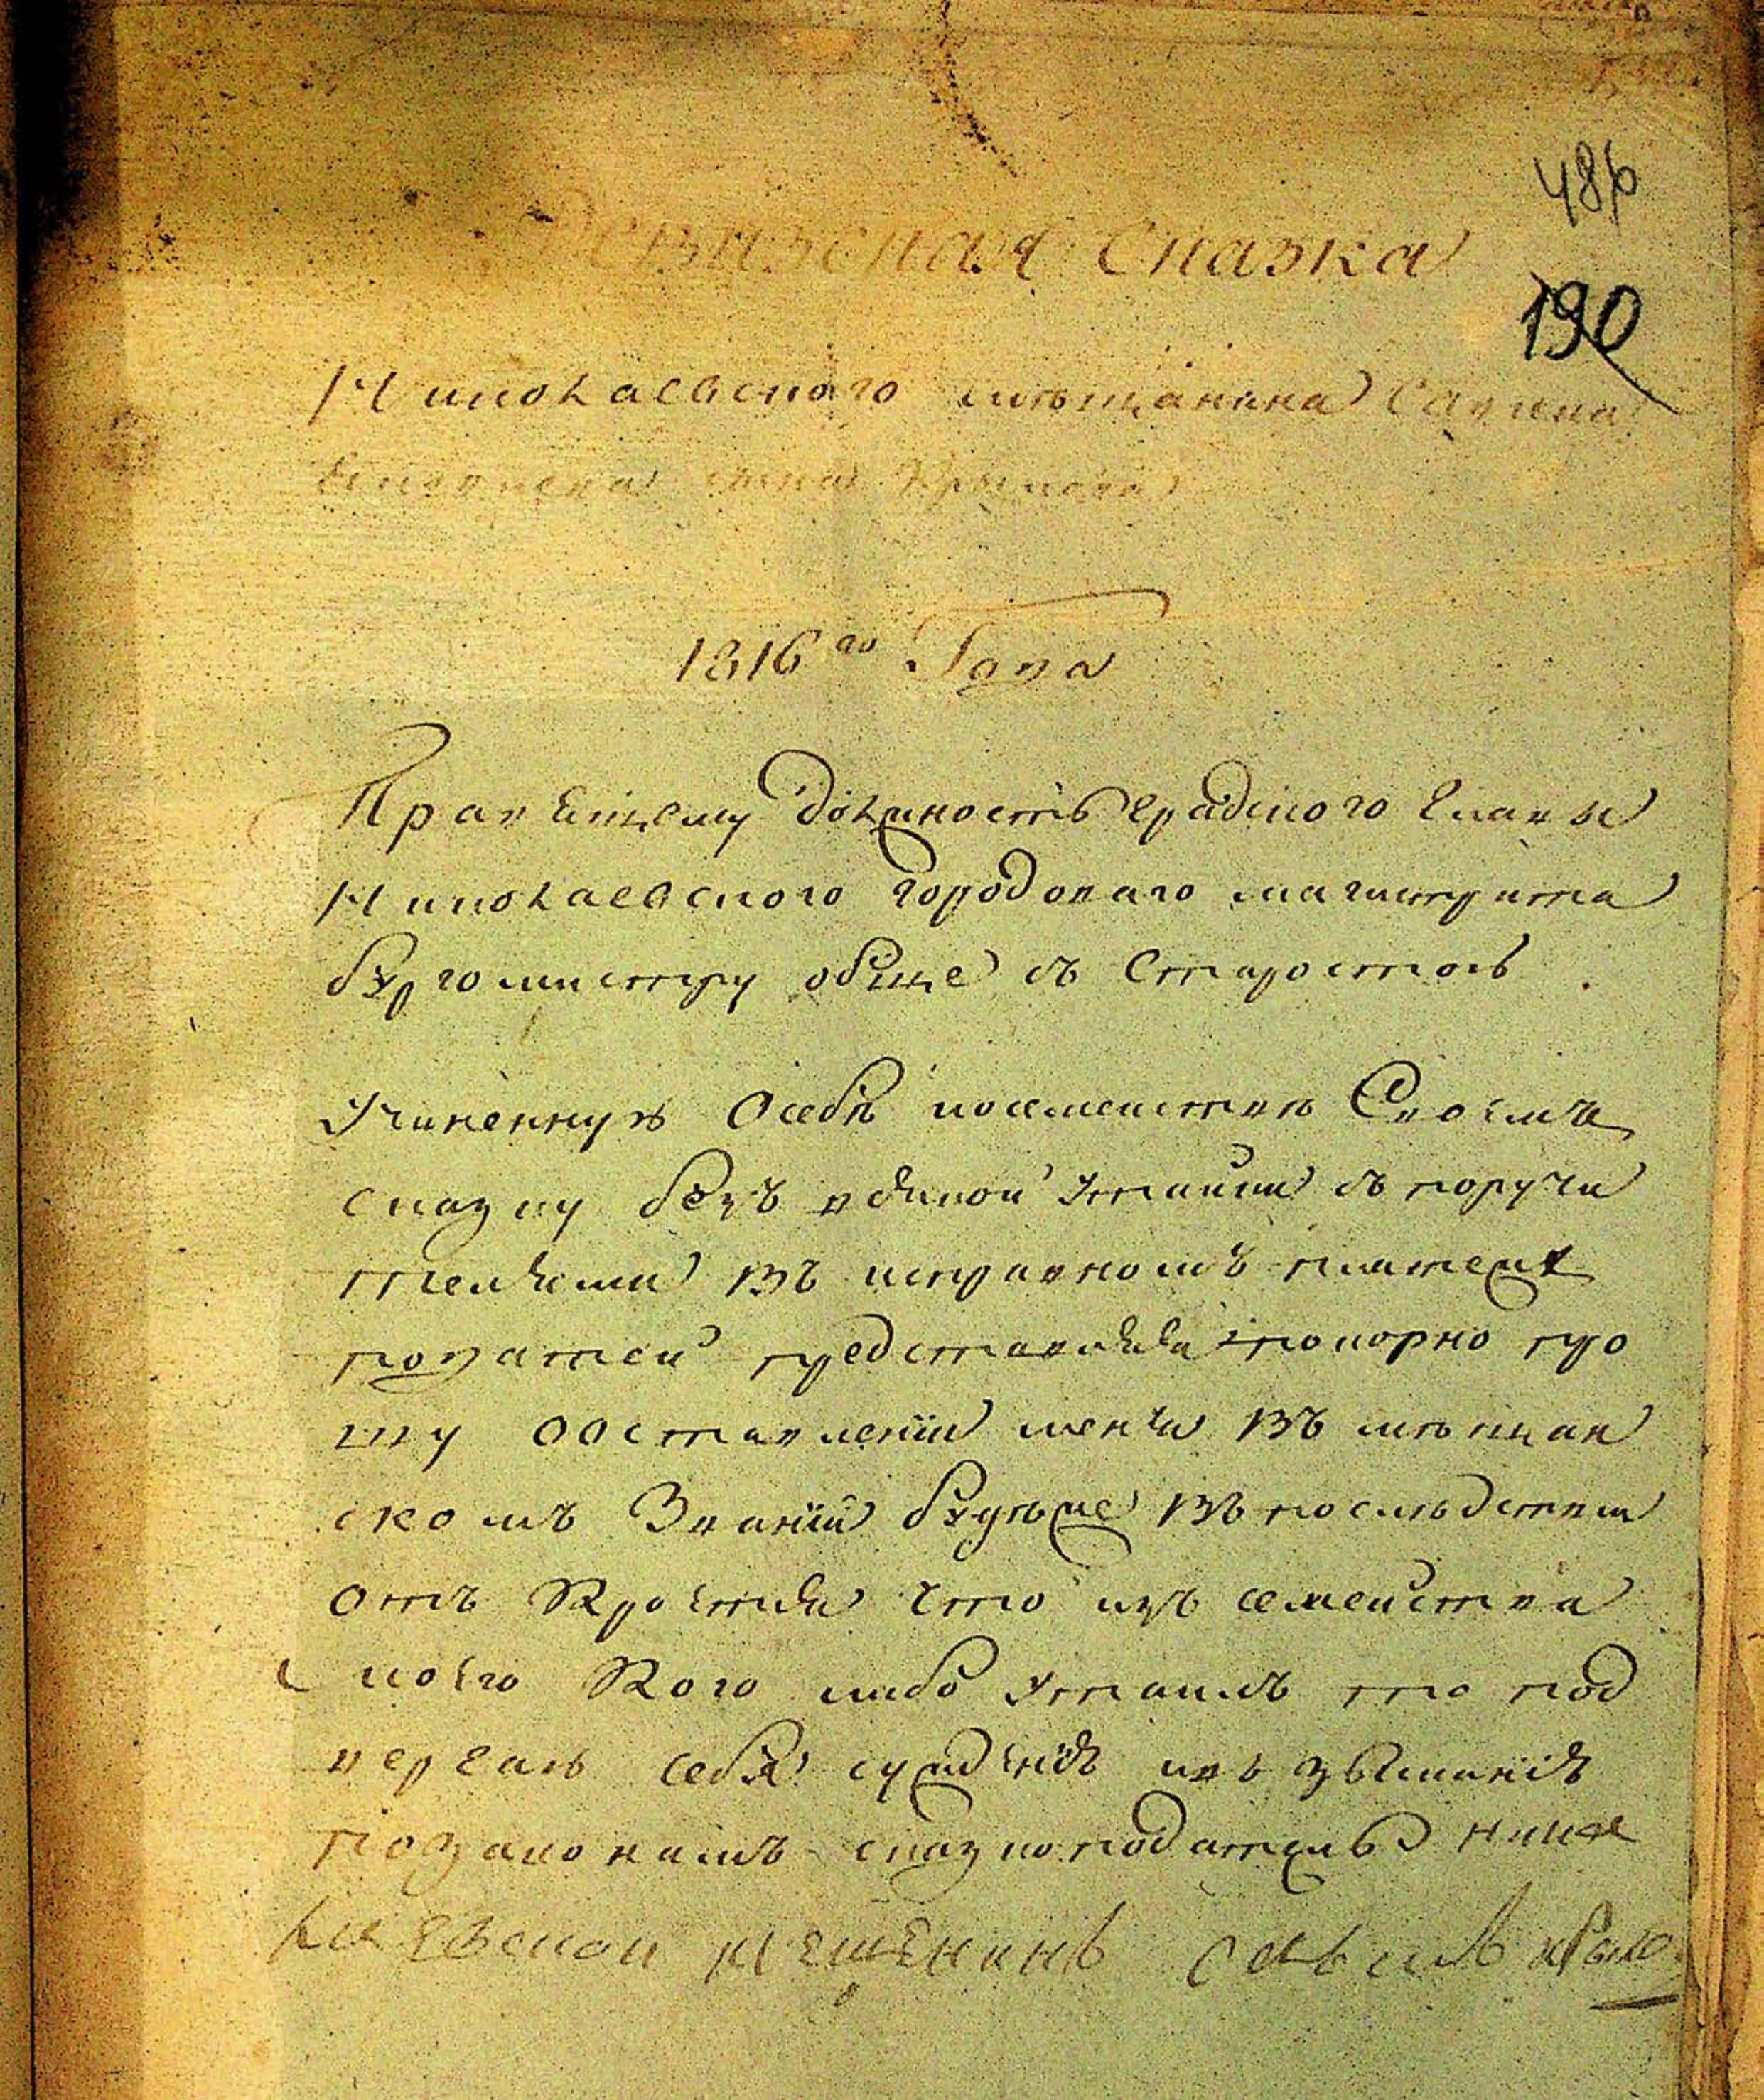 486
Ревизская сказка
190
Николаевского мѣщанина Саввина
сына
1816го Года
Правящему должность градского главы
Николаевского городоваго магистрата
бургомистру обще съ Старостою
Учиненную Осебѣ посемейству Своемъ
сказку безъ единой утайки съ поручи
телями въ исправномъ платеже
податей представляя покорно про
шу обоставлении меня въ мѣщан
скомъ Званіи будеже въ последствии
отъ Кроется что изъ семейства
моего Кого либо утаилъ то под
вергаю себя сужденію и взысканію
по законамъ сказкоподатель нико
лаевской мещенинъ